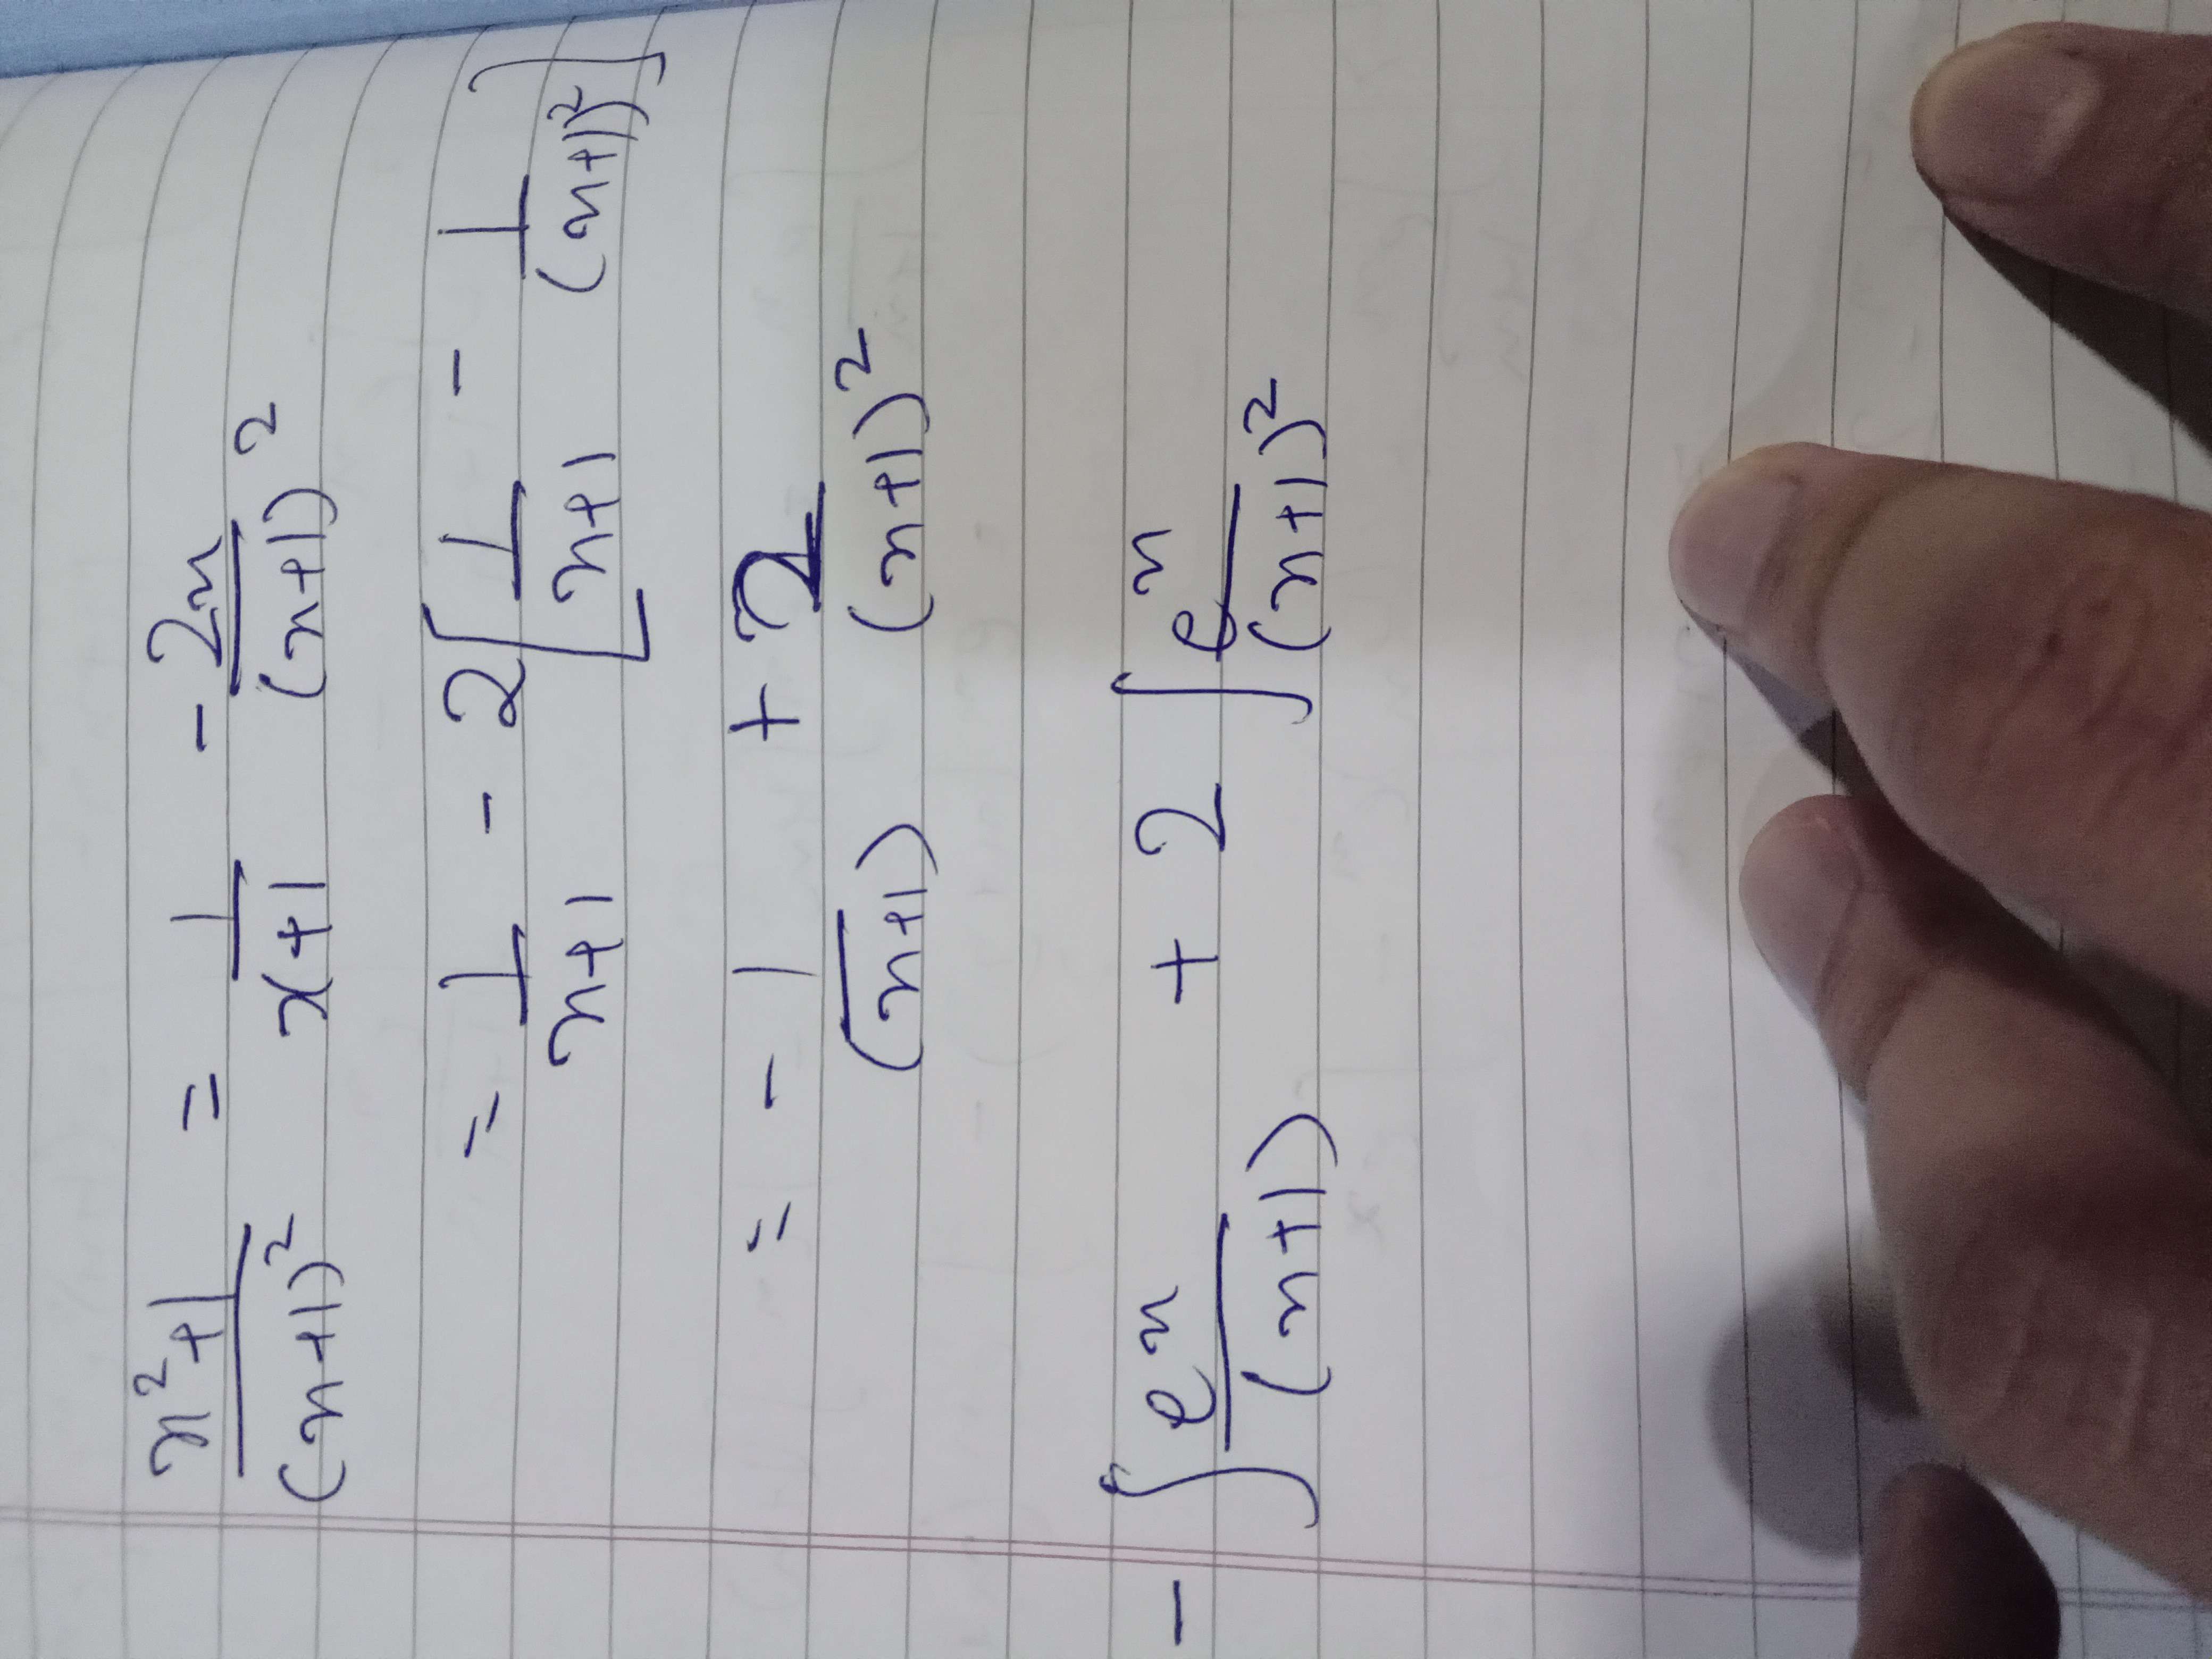 x²+1/(x+1)² = 1/x+1 - 2x/(x+1)²
= 1/x+1 - 2[1/x+1 - 1/(x+1)²]
= - 1/(x+1) + 2/(x+1)²
- ∫ eˣ/(x+1) + 2 ∫ eˣ/(x+1)²